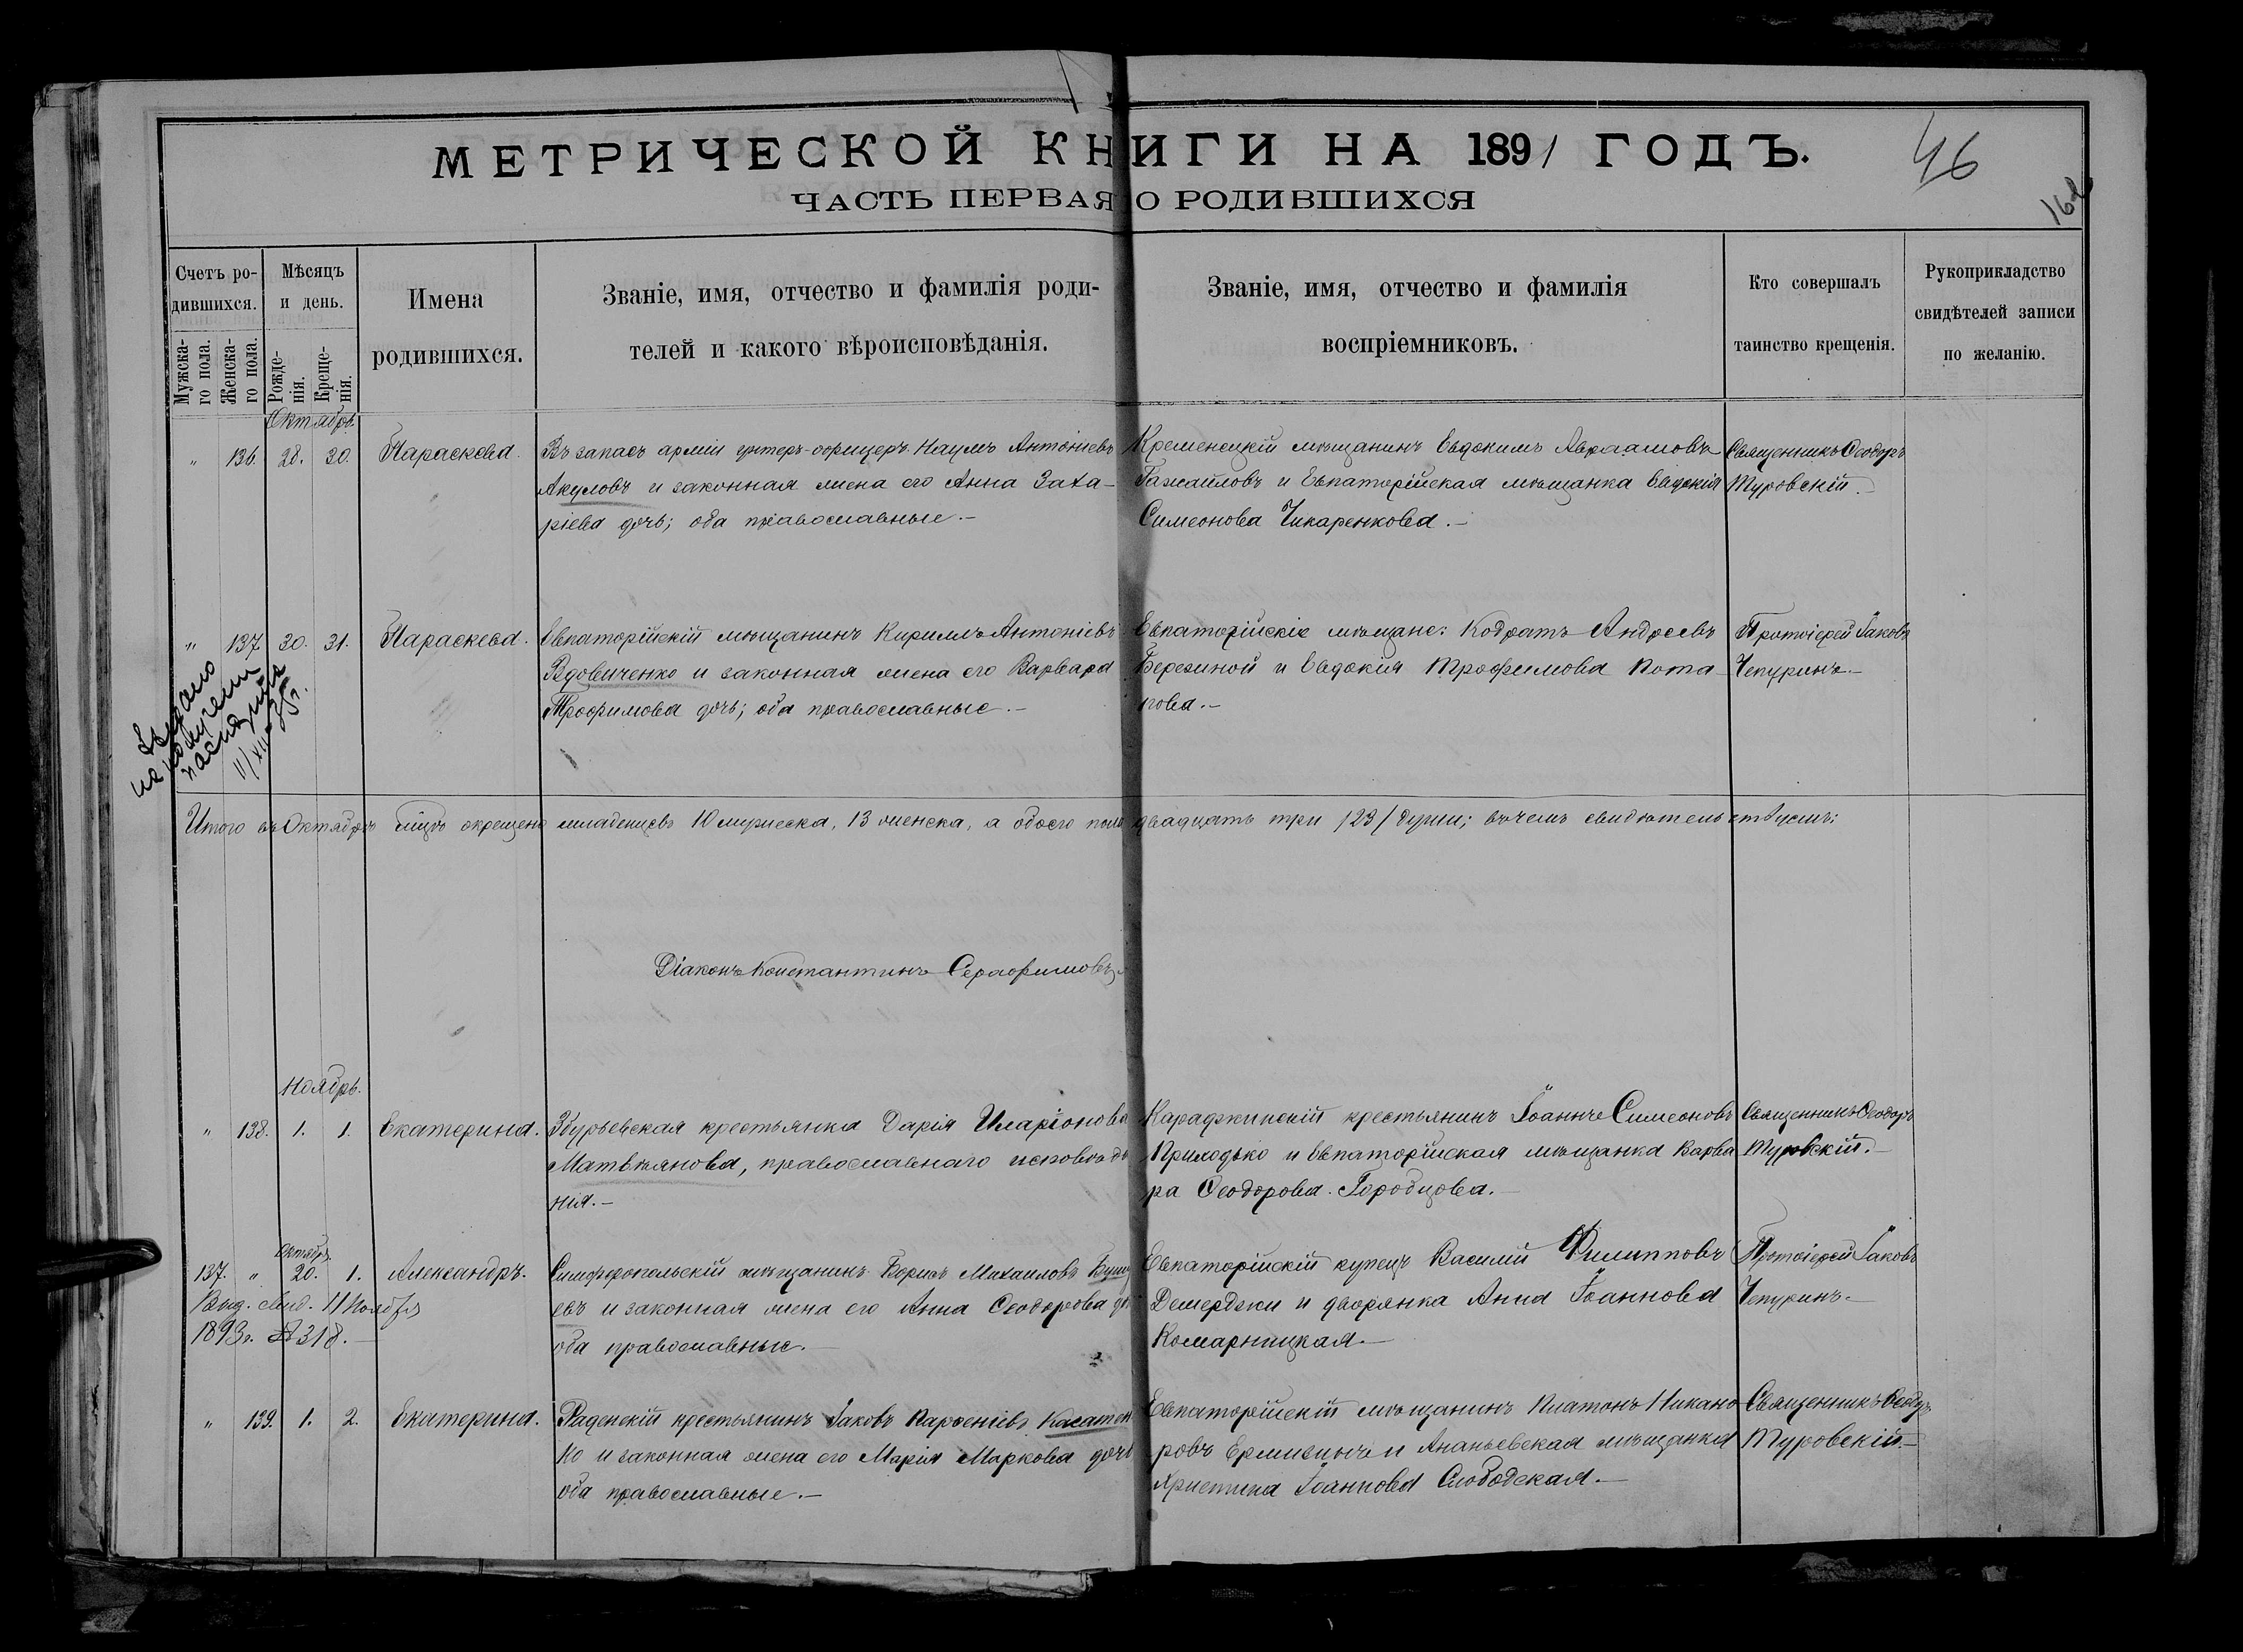 МЕТРИЧЕСКОЙ КНИГИ НА 1891 ГОДЪ.
46
ЧАСТЬ ПЕРВАЯ О РОДИВШИХСЯ
Счетъ ро-
дившихся.
Мужска-
го пола.
Женска-
го пола.
Мѣсяцъ
и день.
Рожде-
нія.
Креще-
нія.
Имена
родившихся.
Званіе, имя, отчество и фамилія роди-
телей и какого вѣроисповѣданія.
Званіе, имя, отчество и фамилія
воспріемниковъ.
Кто совершалъ
таинство крещенія.
Рукоприкладство
свидѣтелей записи
по желанію.
Октябрь
" 136. 28. 30. Параскева.
Въ запасѣ арміи унтеръ-офицеръ Наумъ Антоніевъ
Акуловъ и законная жена его Анна Заха-
ріева дочь; оба православные.-
Кременецкій мѣщанинъ Евдокимъ Авраамовъ
Гажаиловъ и Евпаторійская мѣщанка Евдокія
Симеонова Чикаренкова.-
Священникъ Ѳеодоръ
Туровскій.
" 137 30. 31. Параскева.
Евпаторійскій мѣщанинъ Кириллъ Антоніевъ
Вдовиченко и законная жена его Варвара
Трофимова дочь; оба православные.-
Евпаторійскіе мѣщане: Кодратъ Андреевъ
Березиной и Евдокія Трофимова Пота-
пова.-
Протоіерей Іаковъ
Чепуринъ.-
Выдано
на получение
паспорта
11/XII-35г.
Итого въ Октябрѣ мцѣ окрещено младенцевъ 10 мужеска, 13 женска, а обоего пола двадцать три /23/ души; въ чемъ свидѣтельствуемъ:
Діаконъ Константинъ Серафимовъ
Ноябрь.
" 138. 1. 1. Екатерина.
Збурьевская крестьянка Дарія Иларіонова
Матвіянова, православнаго исповѣда
нія.-
Караджинскій крестьянинъ Іоаннъ Симеоновъ
Приходько и Евпаторійская мѣщанка Варва
ра Ѳеодорова Городцова.-
Священникъ Ѳеодоръ
Туровскій.-
Октябрь
137. " 20. 1. Александръ.
Выд. свид. 11 Ноября
1893г. № 318.-
Симферопольскій мѣщанинъ Борисъ Михаиловъ
евъ и законная жена его Анна Ѳеодорова
оба православные.-
Евпаторійскій купецъ Василій Филипповъ
Демерджи и дворянка Анна Іоаннова
Комарницкая.-
Протоіерей Іаковъ
Чепуринъ.-
" 139. 1. 2. Екатерина.
Раденскій крестьянинъ Іаковъ Парѳеніевъ Касатен
ко и законная жена его Марія Маркова дочь
оба православные.-
Евпаторійскій мѣщанинъ Платонъ Никано
ровъ Ермизинъ и Ананьевская мѣщанка
Христина Іоаннова Слободская.-
Священникъ Ѳеодоръ
Туровскій.-